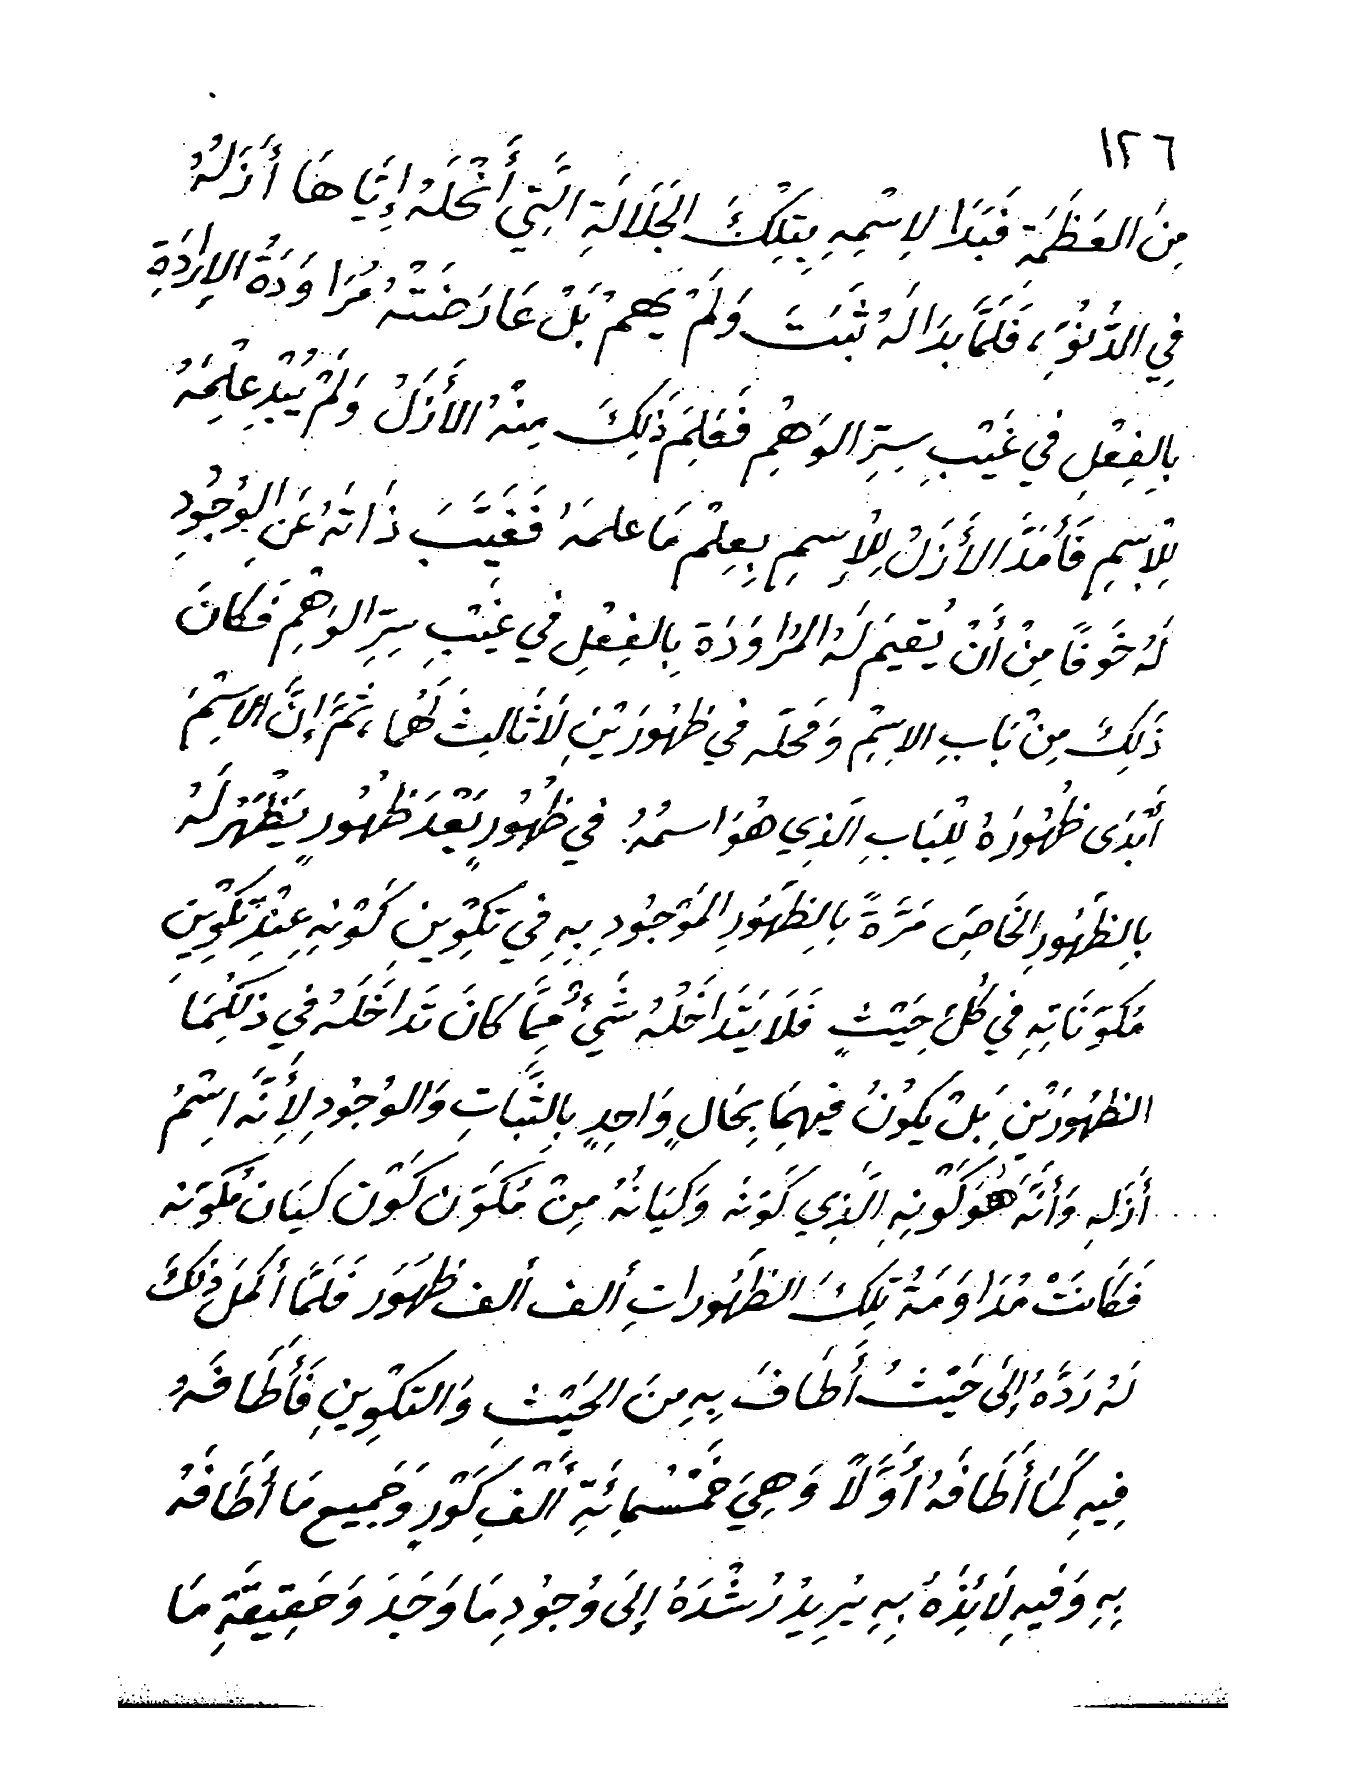 ١٢٦
مِنَ العَظَمَةِ فَبَدَا لِاسْمِهِ بِتِلْكَ الجَلَالَةِ الَّتِي أَنْحَلَهُ إِيَّاهَا أَزَلُهُ
فِي الدُّنُوِّ، فَلَمَّا بَدَا لَهُ ثَبَتَ وَلَمْ يَهِمْ بَلْ عَارَضَتْهُ مُرَاوَدَةُ الإِرَادَةِ
بِالفِعْلِ فِي غَيْبِ سِرِّ الوَهْمِ فَعَلِمَ ذَلِكَ مِنْهُ الأَزَلُ وَلَمْ يُبْدِ عِلْمَهُ
لِلْاسْمِ فَأَمَدَّ الأَزَلُ لِلْإِسمِ بِعِلْمِ مَا علمَهُ فَغَيَّبَ ذَاتَهُ عَنِ الوُجُودِ
لَهُ خَوفًا مِنْ أَنْ يُقيمَ لَهُ المُرَاوَدَة بِالفِعْلِ في غَيْبِ سِرِّ الوَهْمِ فَكانَ
ذَلِكَ مِنْ بَابِ الاسْمِ وَمَحَلّه في ظُهُورَيْنِ لَا ثَالِثَ لَهُمَا، ثُمَّ إِنَّ الاسْمَ
أَبْدَى ظُهُورَهُ لِلْبَابِ الَّذِي هُوَ اسمُهُ في ظُهُورٍ بَعْدَ ظُهُورٍ يَظْهَرُ لَهُ
بِالظُّهُورِ الخَاصِّ مَرَّةً بِالظُّهُورِ المَوْجُودِ بِهِ فِي تَكْوِينِ كَوْنِهِ عِنْدَ تَكْوِينِ
مُكَوِّنَاتِهِ فِي كُلِّ حَيْثٍ فَلَا يَتَدَاخَلُهُ شَيْءٌ مِمَّا كانَ تَدَاخَلَهُ في ذَلِكُمَا
الظُهُورَيْنِ بَلْ يَكُونُ فيهِمَا بِحَالٍ وَاحِدٍ بِالثَّبَاتِ وَالوُجُودِ لِأَنَّه اسْمُ
أَزَلِهِ وَأَنَّهُ هُوَ كَوْنِهِ الَّذِي كَوَّنَهُ وَكِيَانُهُ مِنْ مُكَوّن كَوْن كيَان مُكَوّنه
فَكَانَتْ مُدَاوَمَةُ تِلكَ الظُهُورَاتِ أَلف أَلف ظهُور فَلَمَّا أَكمَلَ ذلِكَ
لَهُ رَدَّهُ إِلَى حَيْثُ أَطَافَ بِهِ مِنَ الحَيْثِ وَالتكْوِينِ فَأَطَافَهُ
فِيهِ كَمَا أَطَافَهُ أَوَّلًا وَهِيَ خَمْسُمائَةِ أَلْفِ كَوْرٍ وَجَمِيع مَا أَطَافَهُ
بِهِ وَفيهِ لَائِذُهُ بِهِ يُرِيدُ رُشْدَهُ إِلَى وُجُودِ مَا وَجَدَ وَحَقِيقَةِ مَا